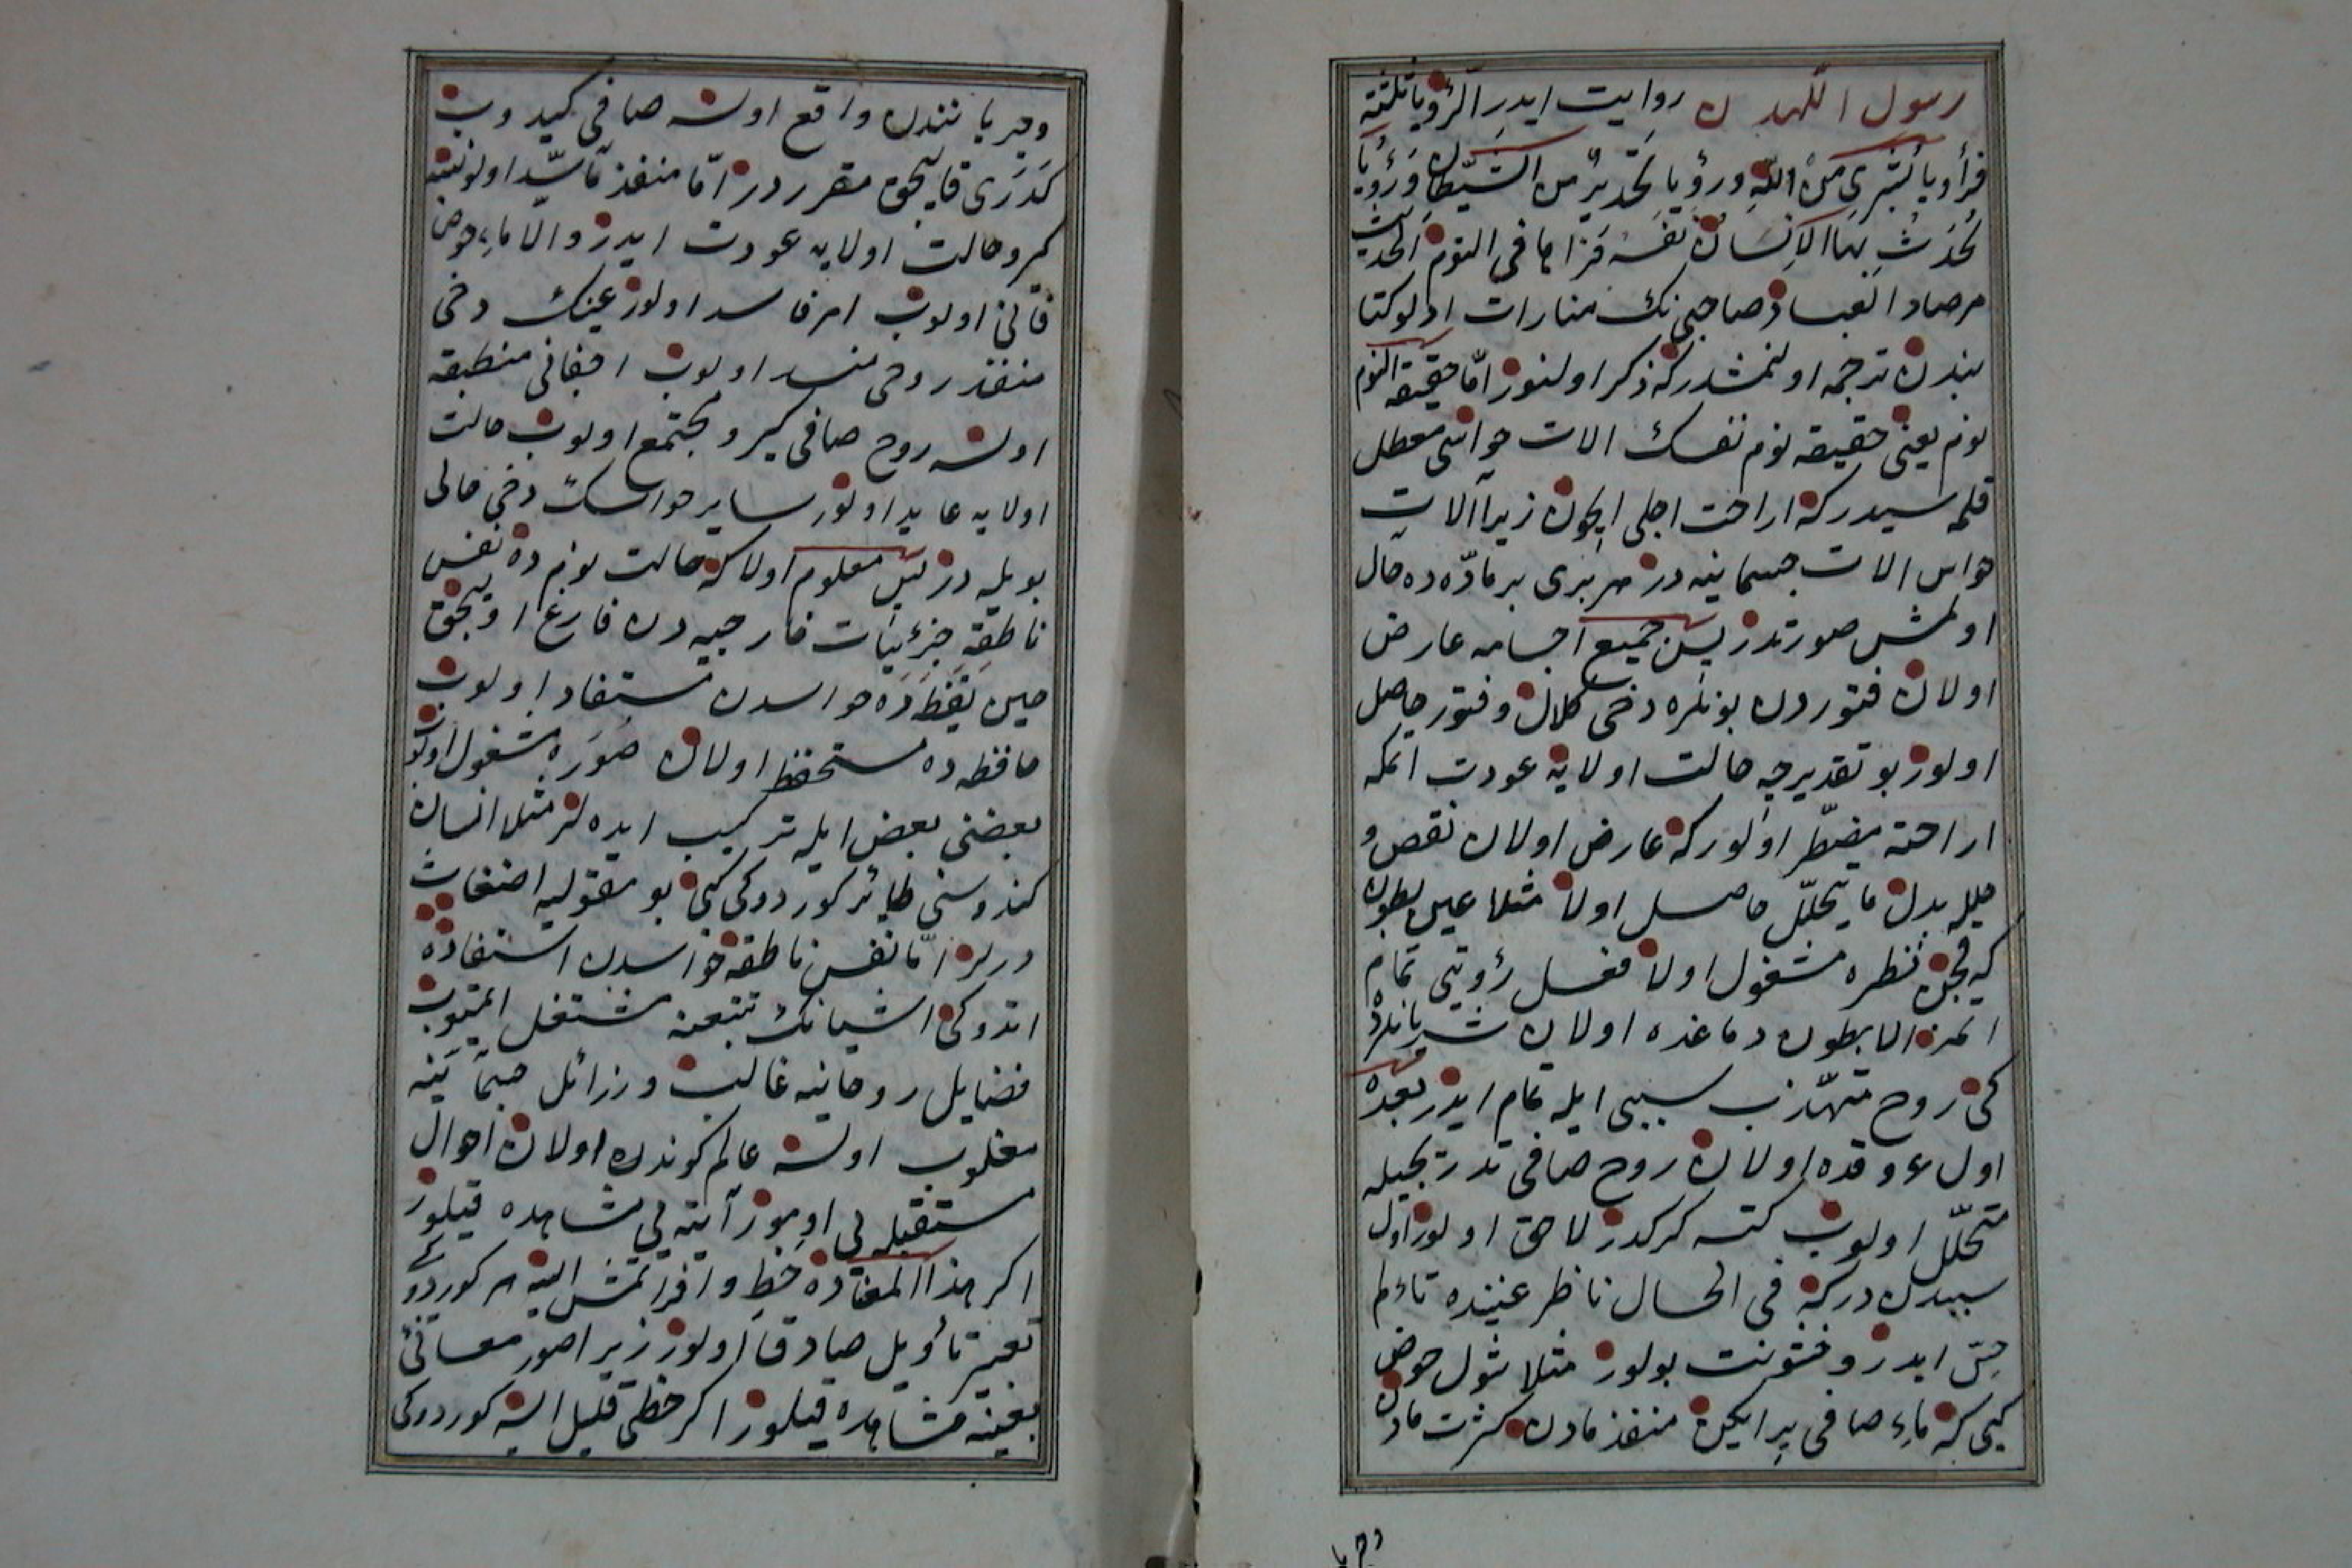 رسول اللهدن روایت ایدر الرؤیا ثلثة
فرأویا بشری من الله ورؤیا تحدیر من الشیطان ورؤیا
یحدث بها الانسان نفسه فزاها فی النوم الحدیث
مرصاد العباد صاحبی نك منارات اولو کتا
بندن ترجمه اولنمشدر که ذکر اولنور اما حقیقة النوم
نوم یعنی حقیقه نوم نفسك الات حواسی معطل
قلمه سیدر که اراحت اجلی ایچون زیرا آلات
حواس الات جسمانیه در هر بری بر ماده ده حال
اولمش صورتدر پس جمیع اجسامه عارض
اولان فتوردن بونلره دخی کلال و فتور حاصل
اولور بو تقدیرجه حالت اولایه عودت اتمکه
اراحته مضطر اولور که عارض اولان نقص و
خلله بدل ما یتحلل حاصل اولا مثلا عین بطون
که فجن نظره مشغول اولا فعل رؤیتی تمام
اتمز الا بطون دماغده اولان شریانلرده
کی روح متهذب سببی ایله تمام ایدر بعده
اول عروقده اولان روح صافی تدریجیله
متحلل اولوب کته کرکدر لاحق اولور اول
سببدن درکه فی الحال ناظر عینیده تاءلم
حس ایدر و خشونت بولور مثلا شول حوض
کبی که ماء صافی پر ایکن منفذ مادن کثرت مادن
وجریا
وجریانندن واقع اولسه صافی کیدوب
کدری قالیجق مقرر در اما منفذ ما سد اولونیجه
کمرو حالت اولایه عودت ایدر والا ماء حوض
فانی اولوب امر فاسد اولور عینك دخی
منفذ روحی منسد اولوب اجفانی منطبقه
اولسه روح صافی کیرو مجتمع اولوب حالت
اولایه عاید اولور سایر حواسك دخی حالی
بویله در پس معلوم اولا که حالت نومده نفس
ناطقه جزئیات خارجیه دن فارغ اولیجق
حین یقظه ده حواسدن مستفاد اولوب
حافظه ده مستحفظ اولان صوره مشغول اولوب
بعضنی بعض ایله ترکیب ایده لر مثلا انسان
کندوسنی طائر کوردوکی کبی بو مقوله یه اضغاث
درلر اما نفس ناطقه حواسدن استفاده
اتدوکی اشیانك تتبعنه مشتغل اولمیوب
فضایل روحانیه غالب ورزائل جسمانیه
مغلوب اولسه عالم کوندن اولان احوال
مستقبله لی اوموز آینه لی مشاهده قیلور
اکر هذا المغاده خط وافر اتمش ایسه هر کوردوکی
تعبیر تاویل صادقا اولور زیرا صور معانئ
بعینه مشاهده قیلور اکر خطی قلیل ایسه کوردوکی